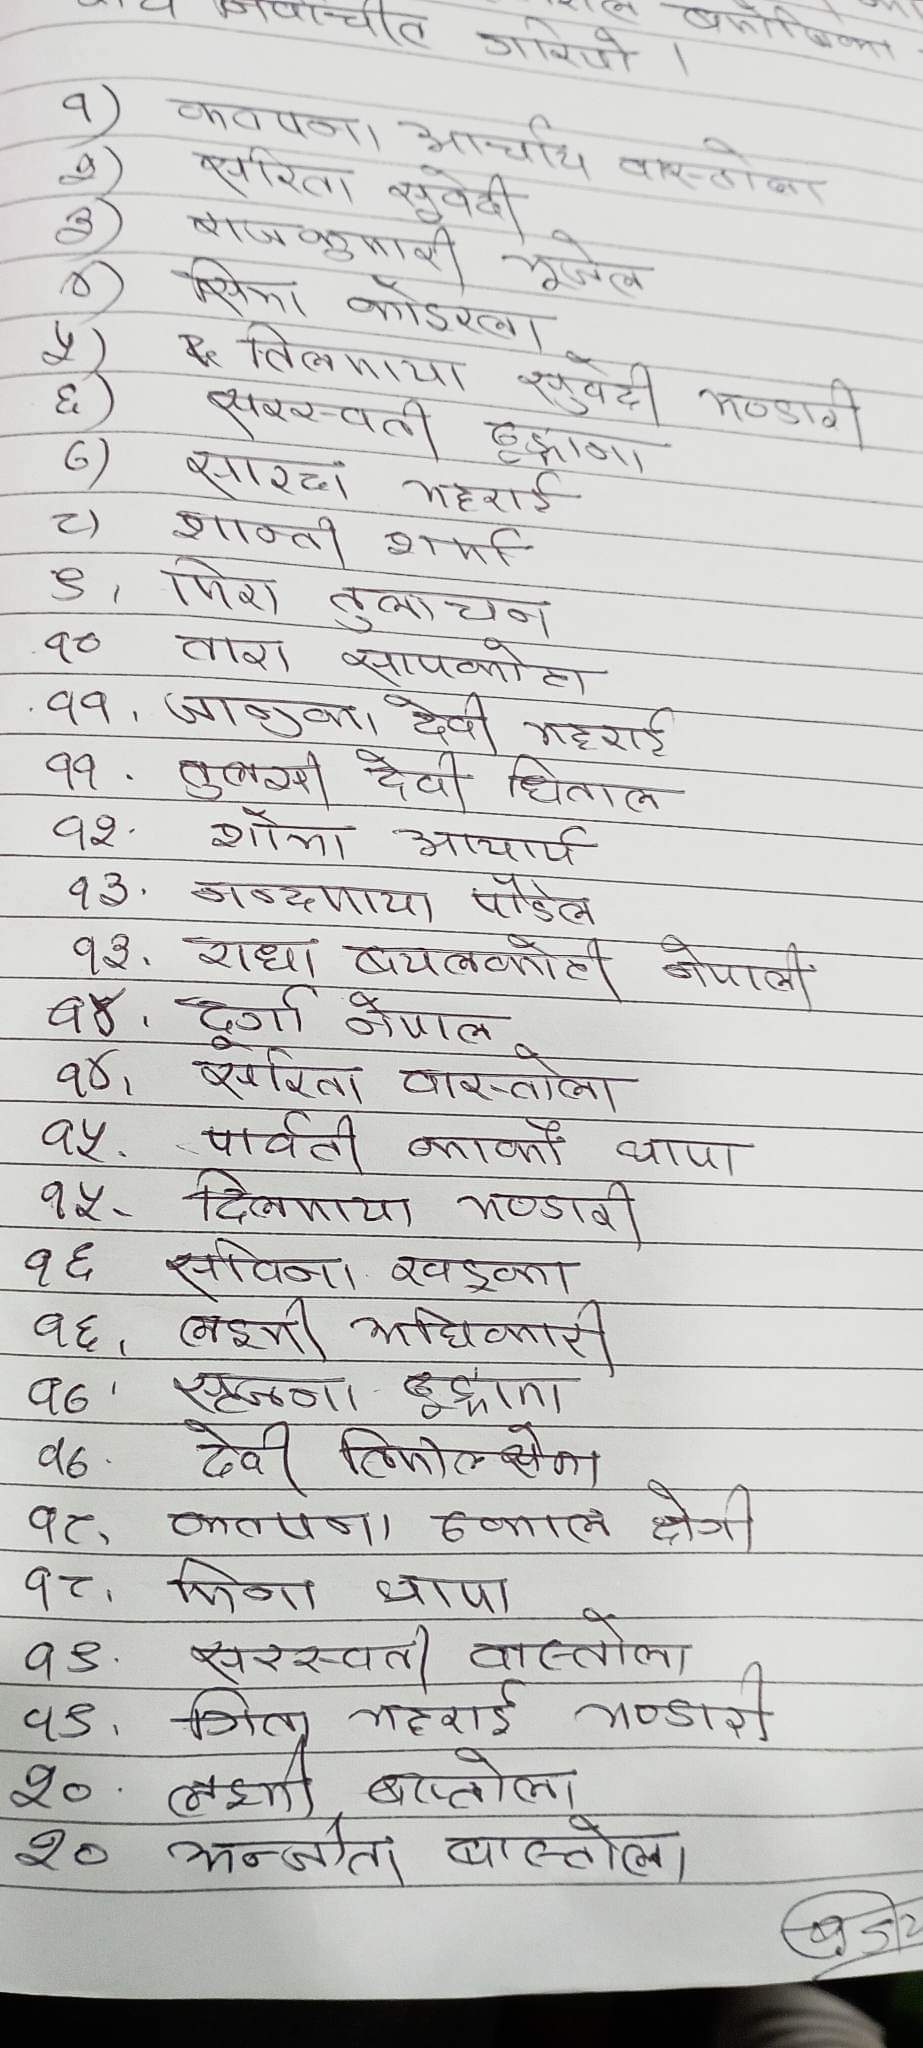 निर्वाचीत गरियो ।
१) कल्पना आर्चाय वास्तोला
२) सरिता सुवेदी
३) राजकुमारी भूजेल
४) सिमा कोइरला
५) तिलमाया सुवेदी भण्डारी
६) सरस्वती ढुङ्गाना
७) सारदा भट्टराई
८) शान्ती शर्मा
९, मिरा तुलाचन
१० तारा सापकोटा
११, जानुका देवी भट्टराई
११. तुलसी देवी धिताल
१२. शोभा आचार्य
१३. नन्दमाया पौडेल
१३. राधा बयलकोटी नेपाली
१४. दूर्गा नेपाल
१४, सरिता वास्तोला
१५. पार्वती कार्की थापा
१५. दिलमाया भण्डारी
१६ सविना खड्का
१६, लक्ष्मी अधिकारी
१७' सृजना ढुङ्गाना
१७. देवी तिमिल्सेना
१८, कल्पना ढकाल क्षेत्री
१८, मिना थापा
१९. सरस्वती वास्तोला
१९, गिता भट्टराई भण्डारी
२०. लक्ष्मी बास्तोला
२० अन्जीता बास्तोला